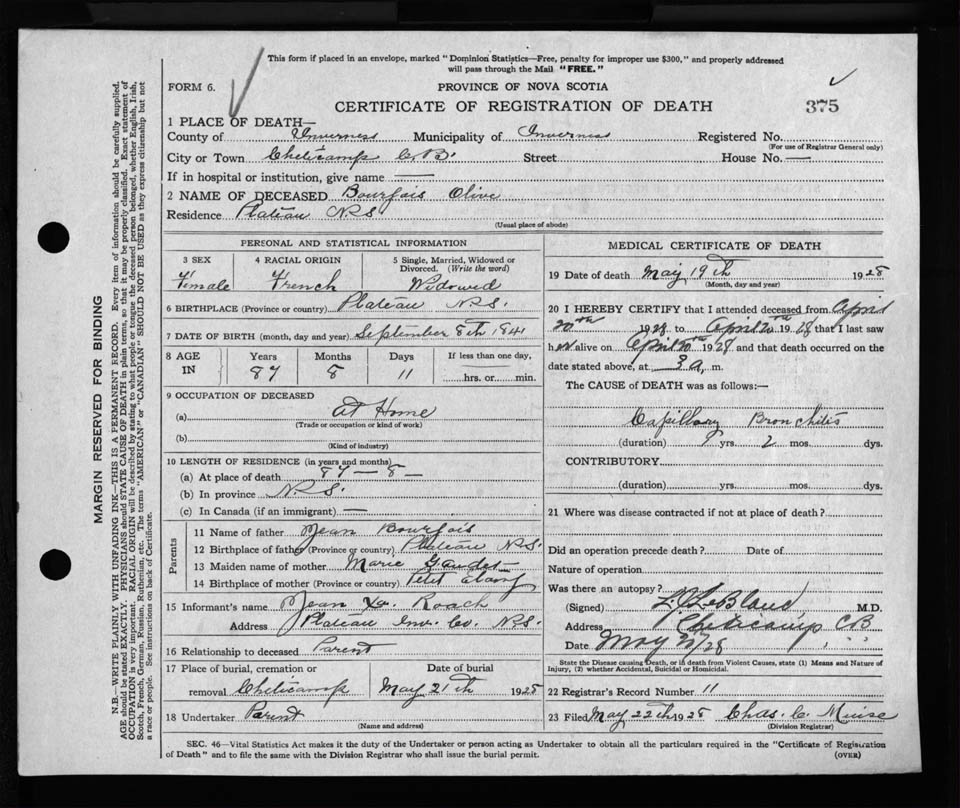 This form if placed in an envelope, marked "Dominion Statistics—Free, penalty for improper use $300," and properly addressed
will pass through the Mail "FREE."
FORM 6.
PROVINCE OF NOVA SCOTIA
CERTIFICATE OF REGISTRATION OF DEATH
375
1 PLACE OF DEATH—
County of Inverness Municipality of Inverness Registered No.
(For use of Registrar General only)
City or Town Cheticamp C.B. Street House No. —
If in hospital or institution, give name —
2 NAME OF DECEASED Bourgois Olive
Residence Plateau N.S.
(Usual place of abode)
PERSONAL AND STATISTICAL INFORMATION
3 SEX
Female
4 RACIAL ORIGIN
French
5 Single, Married, Widowed or
Divorced. (Write the word)
Widowed
6 BIRTHPLACE (Province or country) Plateau N.S.
7 DATE OF BIRTH (month, day and year) September 8th 1841
8 AGE
IN
Years
87
Months
8
Days
11
If less than one day,
hrs. or min.
9 OCCUPATION OF DECEASED
(a) At Home
(Trade or occupation or kind of work)
(b)
(Kind of industry)
10 LENGTH OF RESIDENCE (in years and months)
(a) At place of death 87 — 8 —
(b) In province N.S.
(c) In Canada (if an immigrant) —
Parents
11 Name of father Jean Bourgois
12 Birthplace of father (Province or country) Plateau N.S.
13 Maiden name of mother Marie Gaudet
14 Birthplace of mother (Province or country) Petit Etang
15 Informant's name Jean Roach
Address Plateau Inv. Co. N.S.
16 Relationship to deceased Parent
17 Place of burial, cremation or
removal Cheticamp
Date of burial
May 21th 1928
18 Undertaker Parent
(Name and address)
MEDICAL CERTIFICATE OF DEATH
19 Date of death May 19th 1928
(Month, day and year)
20 I HEREBY CERTIFY that I attended deceased from April
20th 1928 to April 20th 1928 that I last saw
her alive on April 20th 1928 and that death occurred on the
date stated above, at 3 a. m.
The CAUSE of DEATH was as follows:—
Capillary Bronchitis
(duration) yrs. 2 mos. dys.
CONTRIBUTORY
(duration) yrs. mos. dys.
21 Where was disease contracted if not at place of death?
Did an operation precede death? Date of
Nature of operation
Was there an autopsy?
(Signed) LeBlanc M.D.
Address Cheticamp CB
Date May 28
State the Disease causing Death, or in death from Violent Causes, state (1) Means and Nature of
Injury, (2) whether Accidental, Suicidal or Homicidal.
22 Registrar's Record Number 11
23 Filed May 22th 1928 Chas. C. Muise
(Division Registrar)
SEC. 46—Vital Statistics Act makes it the duty of the Undertaker or person acting as Undertaker to obtain all the particulars required in the "Certificate of Registration
of Death" and to file the same with the Division Registrar who shall issue the burial permit.
(OVER)
MARGIN RESERVED FOR BINDING
N.B.—WRITE PLAINLY WITH UNFADING INK—THIS IS A PERMANENT RECORD. Every item of information should be carefully supplied.
AGE should be stated EXACTLY. PHYSICIANS should STATE CAUSE OF DEATH in plain terms, so that it may be properly classified. Exact statement of
OCCUPATION is very important. RACIAL ORIGIN will be described by stating to what people or tongue the deceased person belonged, whether English, Irish,
Scotch, French, German, Russian, Ruthenian, etc. The terms "AMERICAN" or "CANADIAN" SHOULD NOT BE USED as they express citizenship but not
a race or people. See instructions on back of Certificate.